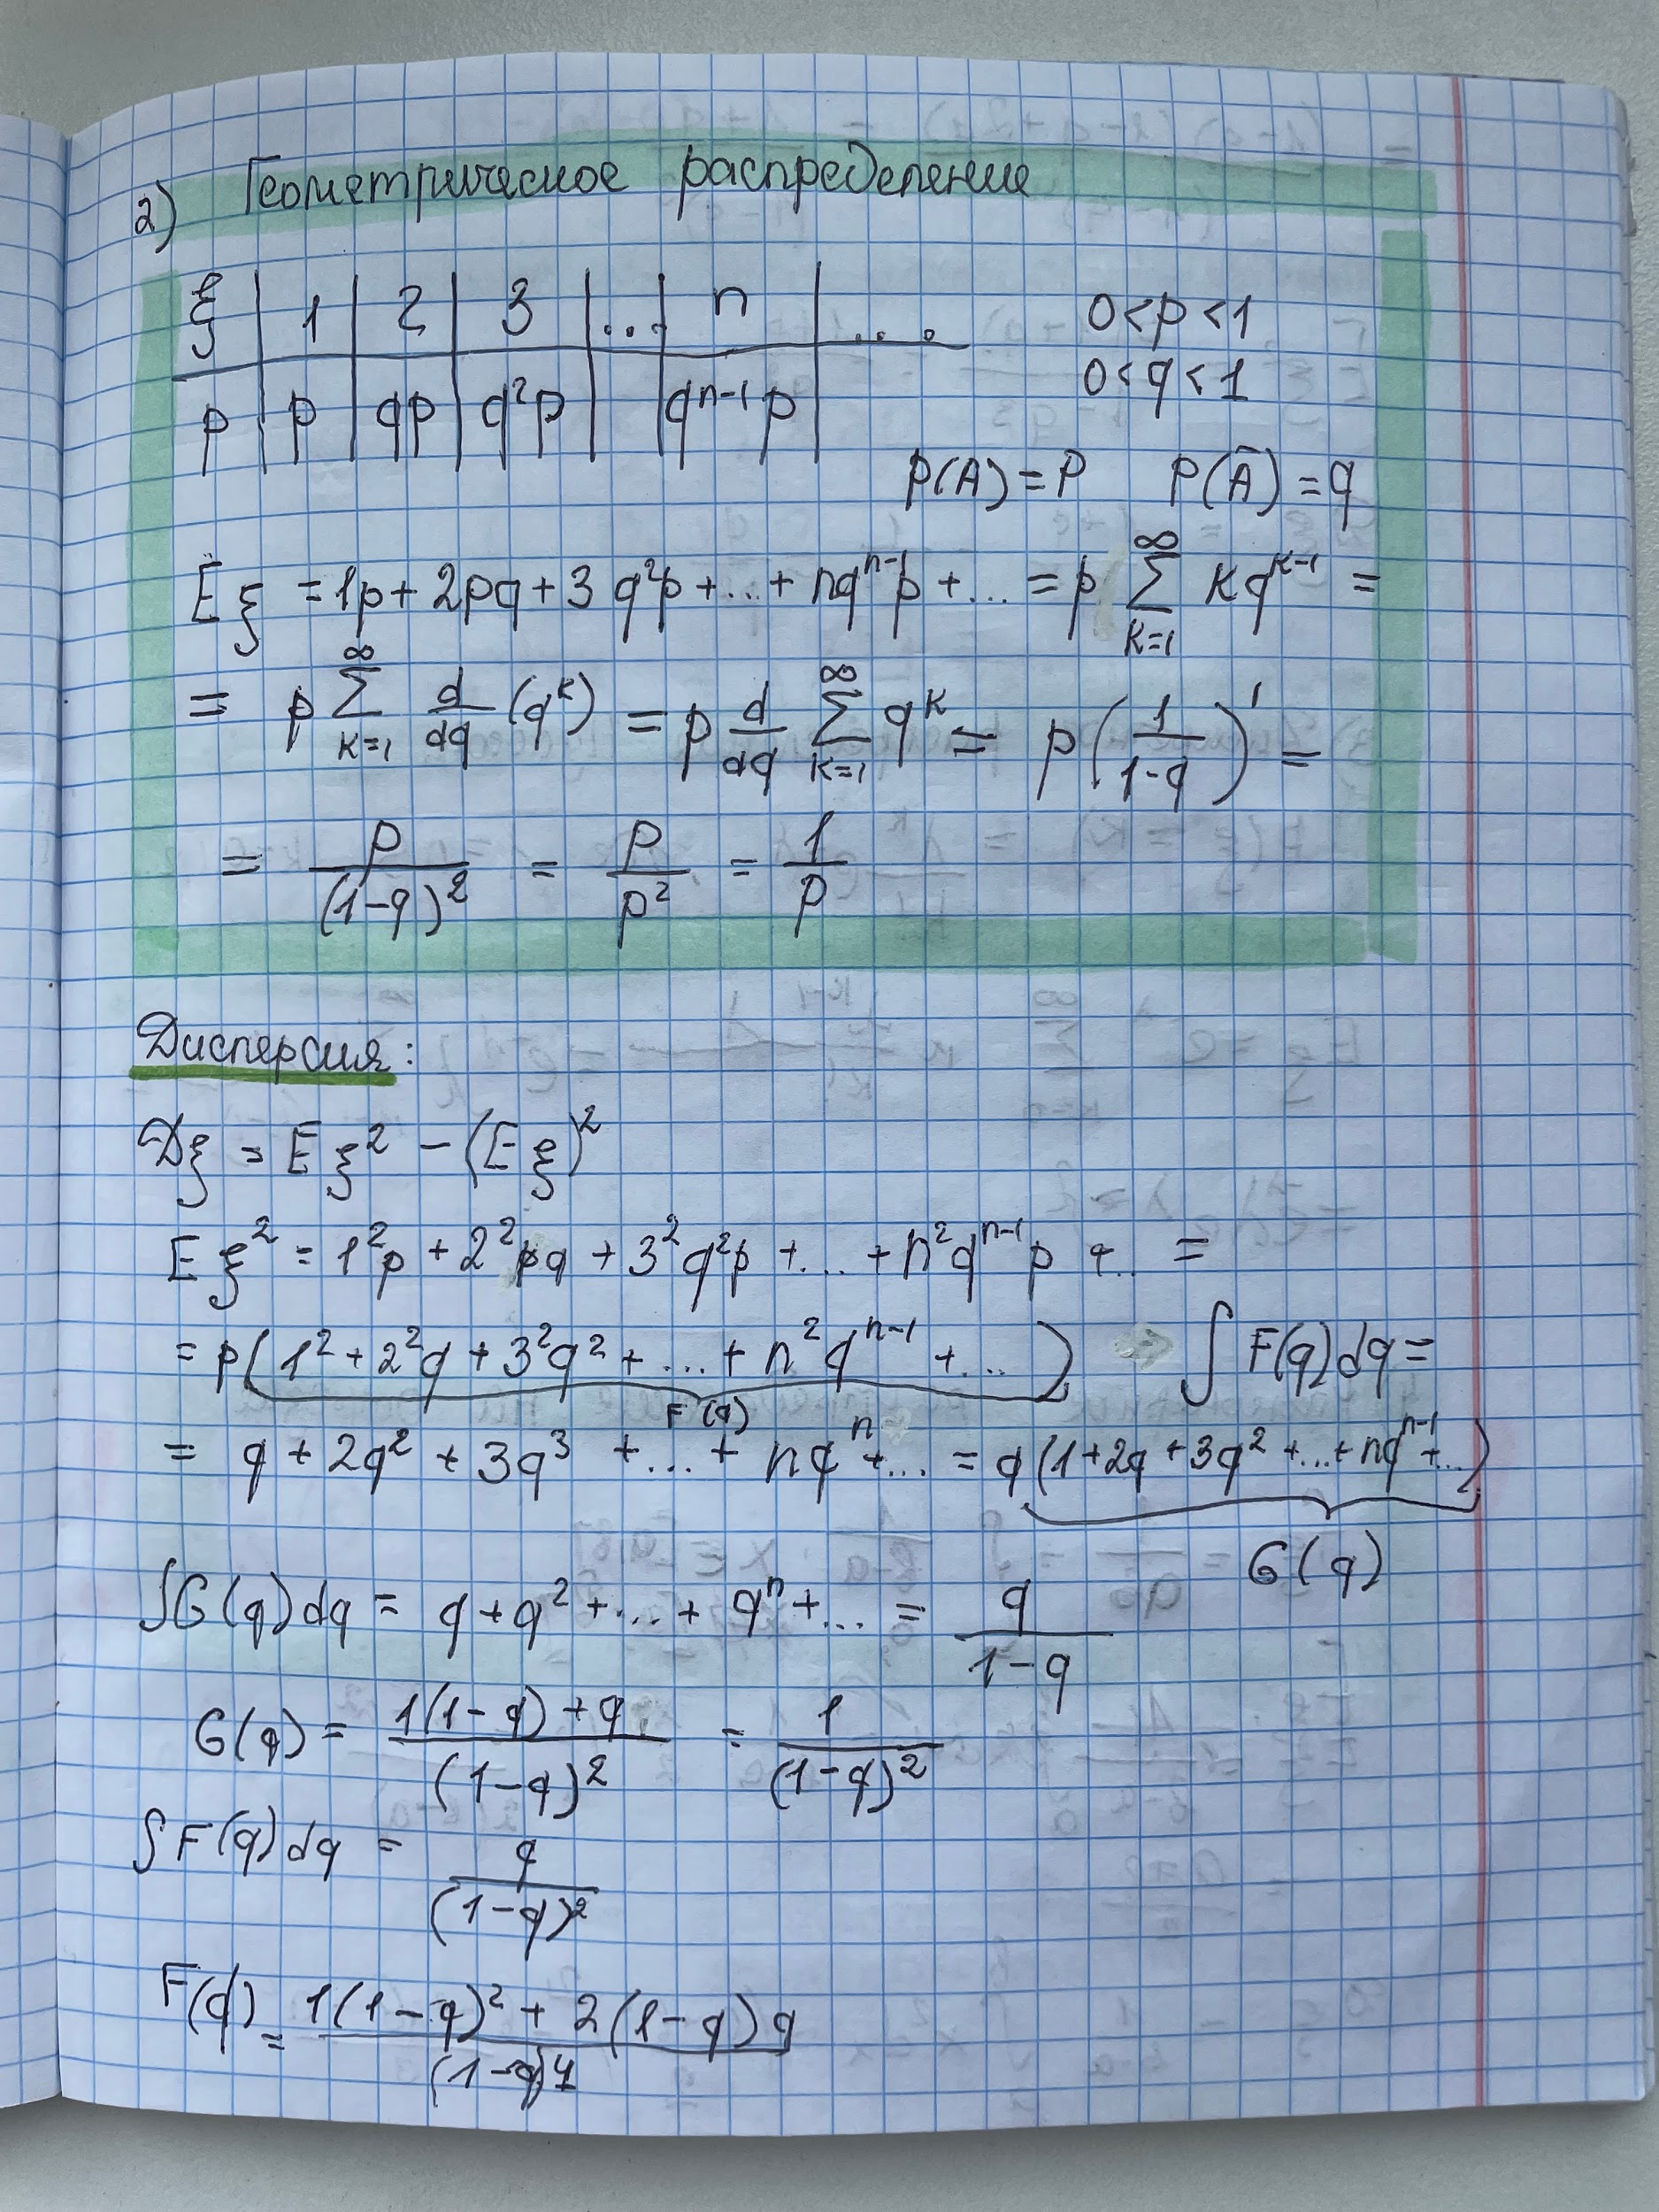 2) Геометрическое распределение
ξ | 1 | 2 | 3 | ... | n | .... 0<p<1
p | p | qp | q²p | | qⁿ⁻¹p | 0<q<1
P(A)=P P(Ā)=q
Eξ = 1p + 2pq + 3q²p + ... + nqⁿ⁻¹p + ... = p ∑_{k=1}^{∞} kq^{k-1} =
= p ∑_{k=1}^{∞} d/dq (q^k) = p d/dq ∑_{k=1}^{∞} q^k = p(1/(1-q))' =
= p/(1-q)² = p/p² = 1/p
Дисперсия:
Dξ = Eξ² − (Eξ)²
Eξ² = 1²p + 2²pq + 3²q²p + ... + n²qⁿ⁻¹p + .. =
= p(1² + 2²q + 3²q² + ... + n²qⁿ⁻¹ + ...) ∫F(q)dq =
F(q)
= q + 2q² + 3q³ + ... + nqⁿ + ... = q(1 + 2q + 3q² + ... + nqⁿ⁻¹ + ...)
G(q)
∫G(q)dq = q + q² + ... + qⁿ + ... = q/(1-q)
G(q) = (1(1-q) + q)/(1-q)² = 1/(1-q)²
∫F(q)dq = q/(1-q)²
F(q) = (1(1-q)² + 2(1-q)q)/(1-q)4